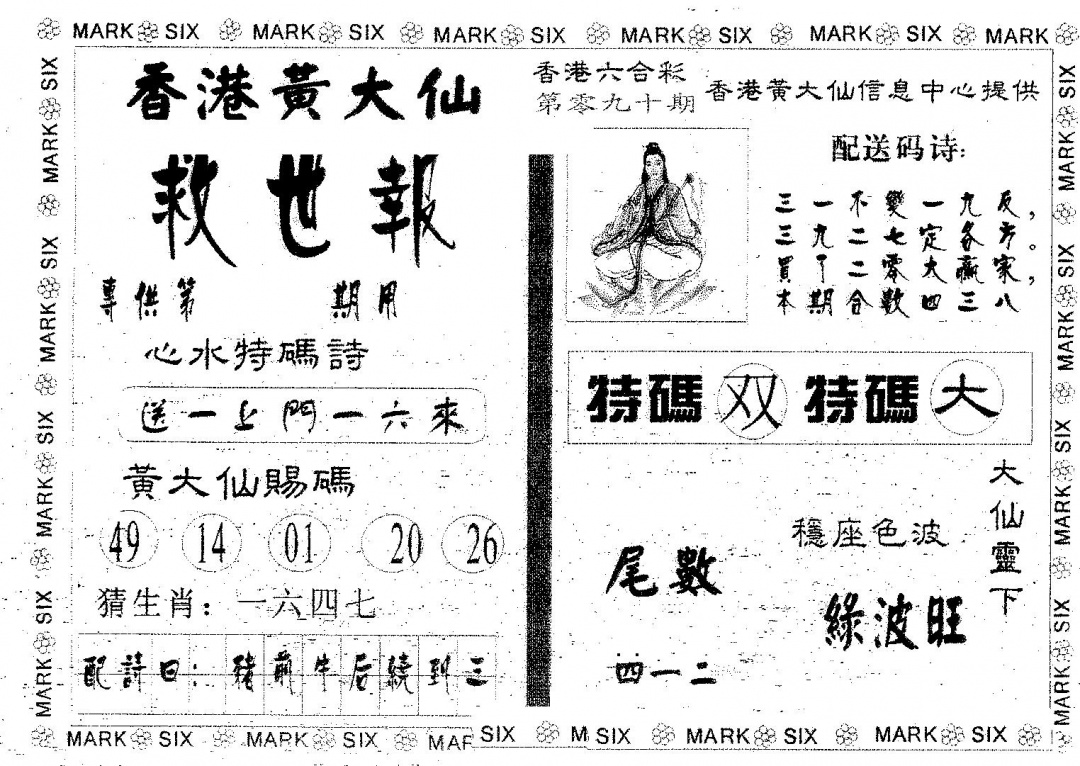 MARK SIX MARK SIX MARK SIX MARK SIX MARK SIX MARK
香港黃大仙
救世報
專供第 期用
心水特碼詩
送一上門一六來
黃大仙賜碼
49 14 01 20 26
猜生肖：一六四七
配詩曰：豬前牛后續到三
香港六合彩
第零九十期
香港黃大仙信息中心提供
配送码诗:
三一不變一九反，
三九二七定各方。
買了二零大贏家，
本期合數四三八
特碼 双 特碼 大
大仙靈下
穩座色波
綠波旺
尾數
四一二
MARK SIX MARK SIX MAR SIX M SIX MARK SIX MARK SIX
MARK SIX MARK SIX MARK SIX MARK SIX
MARK SIX MARK SIX MARK SIX MARK SIX